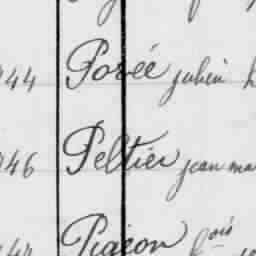 44 Porée julien
46 Peltier jean ma
44 Pigeon